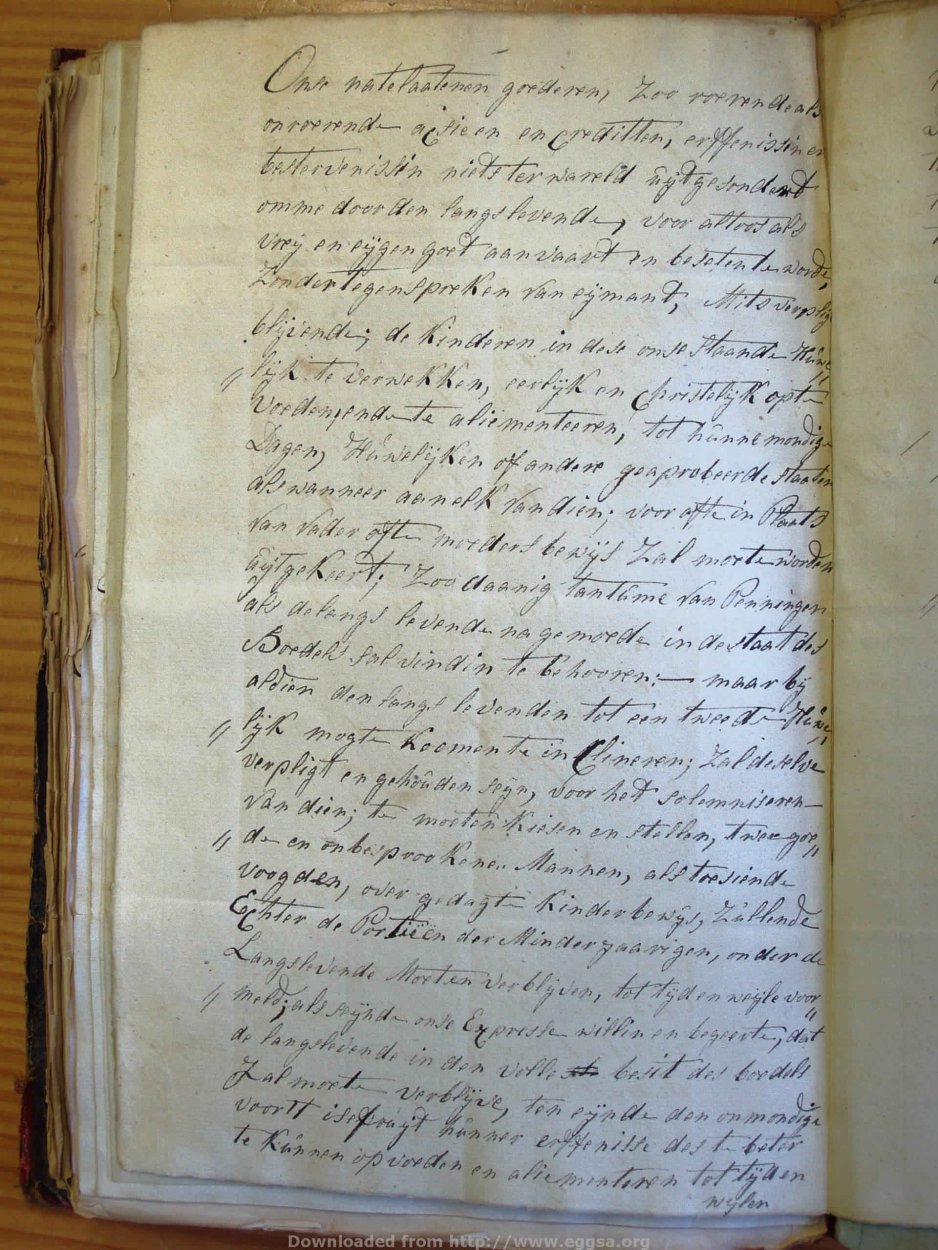 Onse natelaatenen goederen, Zoo roerende als
onroerende actieen en Creditten, erffenissin en
besterVenissin niets ter wareld uijtgesonderd
omme door den langslevende, voor altoos als
vrij en eijgen goet aanvaart en beseten te worde,
Zonder tegenspreken Van eijmant, Mits verplig
blijvende; de Kinderen in dese onse staande Hüwe„
„lijk te Verwekken, eerlijk en Christelijk opte
Voeden, ende te aliementeeren, tot hünne mondige
Dagen, Hüwelijken of andere geaprobeerde Staaten
als wanneer aan elk Van dien; voor afte in Plaats
Van Vader ofte moeders bewijs Zal moete worden
üijtgekeert; Zoo daanig tantüme Van Penningen
als de langs levende na gemoede in de staat des
Boedels sal vindin te behooren:— maar bij
aldien den langs levenden tot een tweede Hüwe„
„lijk mogte koomen te inClineren; Zal deselve
verpligt en gehoüden seijn, voor het solemniseren—
Van dien; te moeten Kiesen en stellen, twee goe„
„de en onbesprookene Mannen, als toesiende
voogden, over gedagte Kinder bewijs, Züllende
Echter de Portiën der Minderjaarigen, onder de
Langslevende Moeten Verblijven, tot tijd en weijle voor„
„meld; als seijnde onse Expresse willin en begeerte, dat
de langslevende in den volle besit des boedels
Zal moete verblijve, ten eijnde den onmondige
voortt üijt hünner erffenisse des te beter
te Künnen opvoeden en alimenteren tot tijd en
wijlen
Downloaded from http://www.eggsa.org